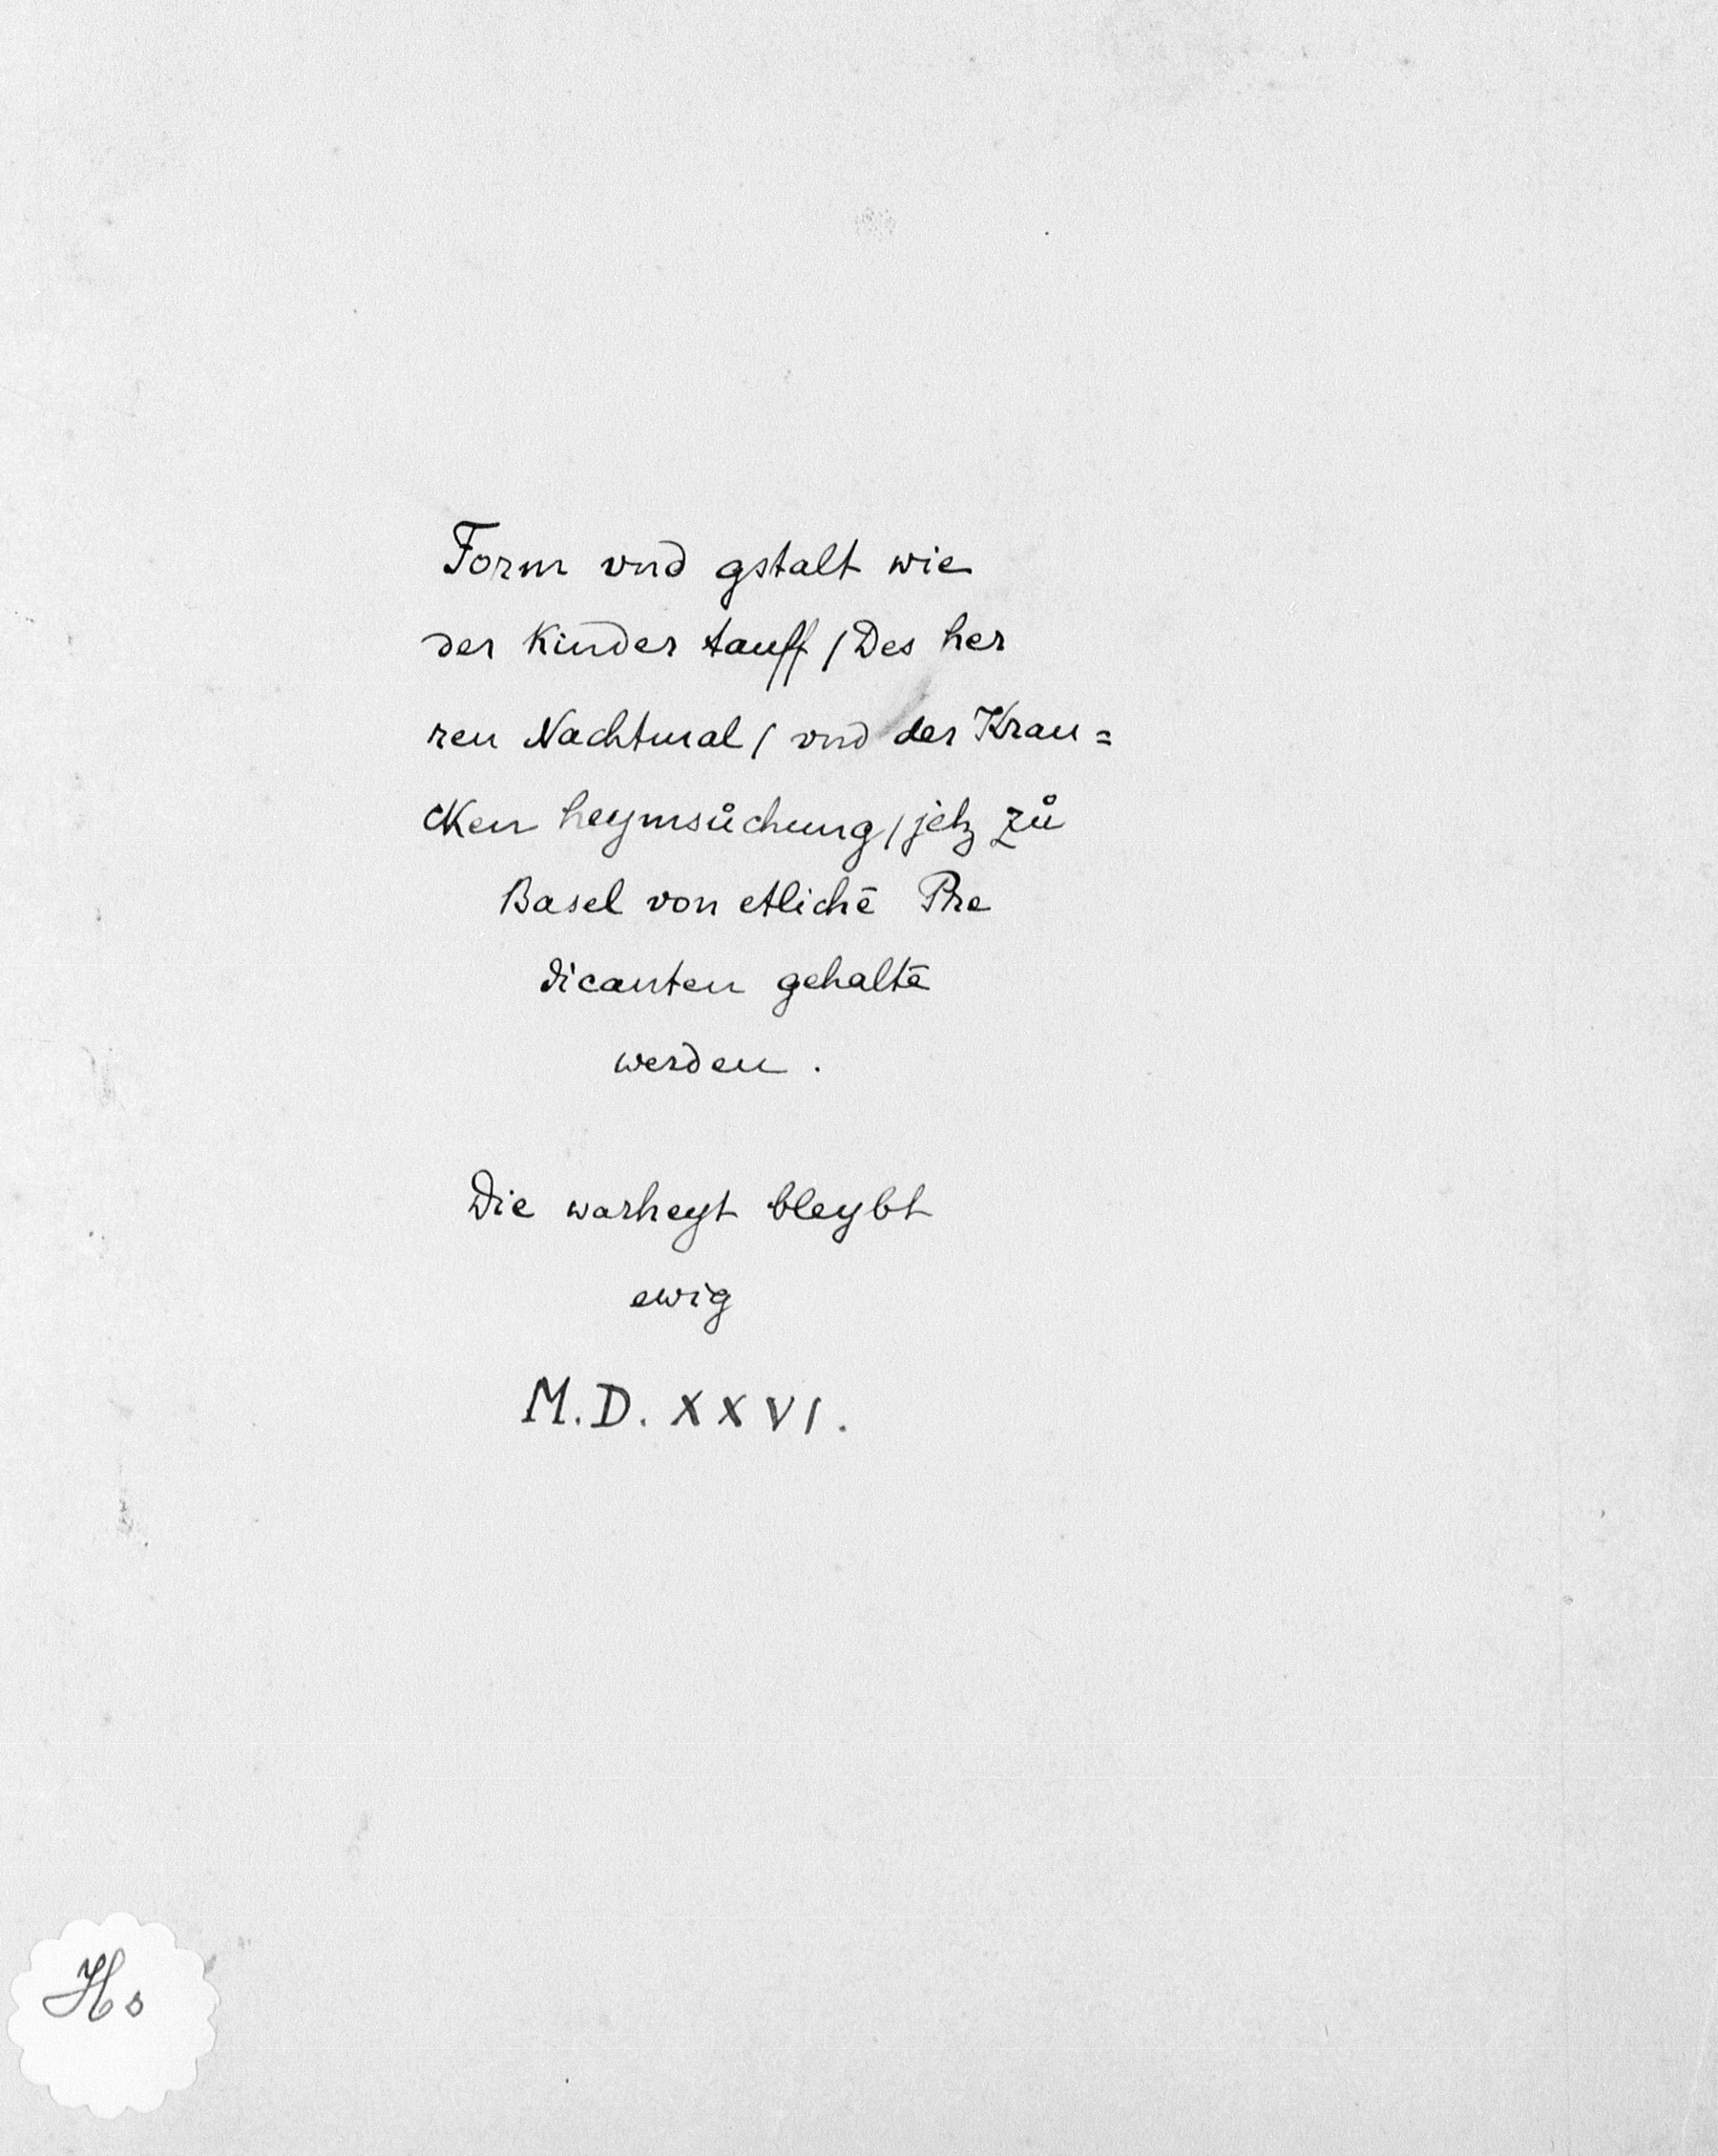 Form vnd gstalt wie
der Kinder tauff / Des her
ren Nachtmal / vnd der Kran=
cken heymsůchung / jetz zů
Basel von etlichē Pre
dicanten gehaltē
werden .
Die warheyt bleybt
ewig
M.D. XXVI.
Hs